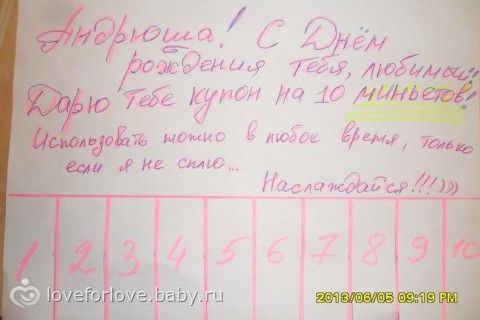 Андрюша! С Днём
рождения тебя, любимый!!
Дарю тебе купон на 10 миньетов!
Использовать можно в любое время, только
если я не сплю...
Наслаждайся!!!)))
1 2 3 4 5 6 7 8 9 10
loveforlove.baby.ru
2013/06/05 09:19 PM